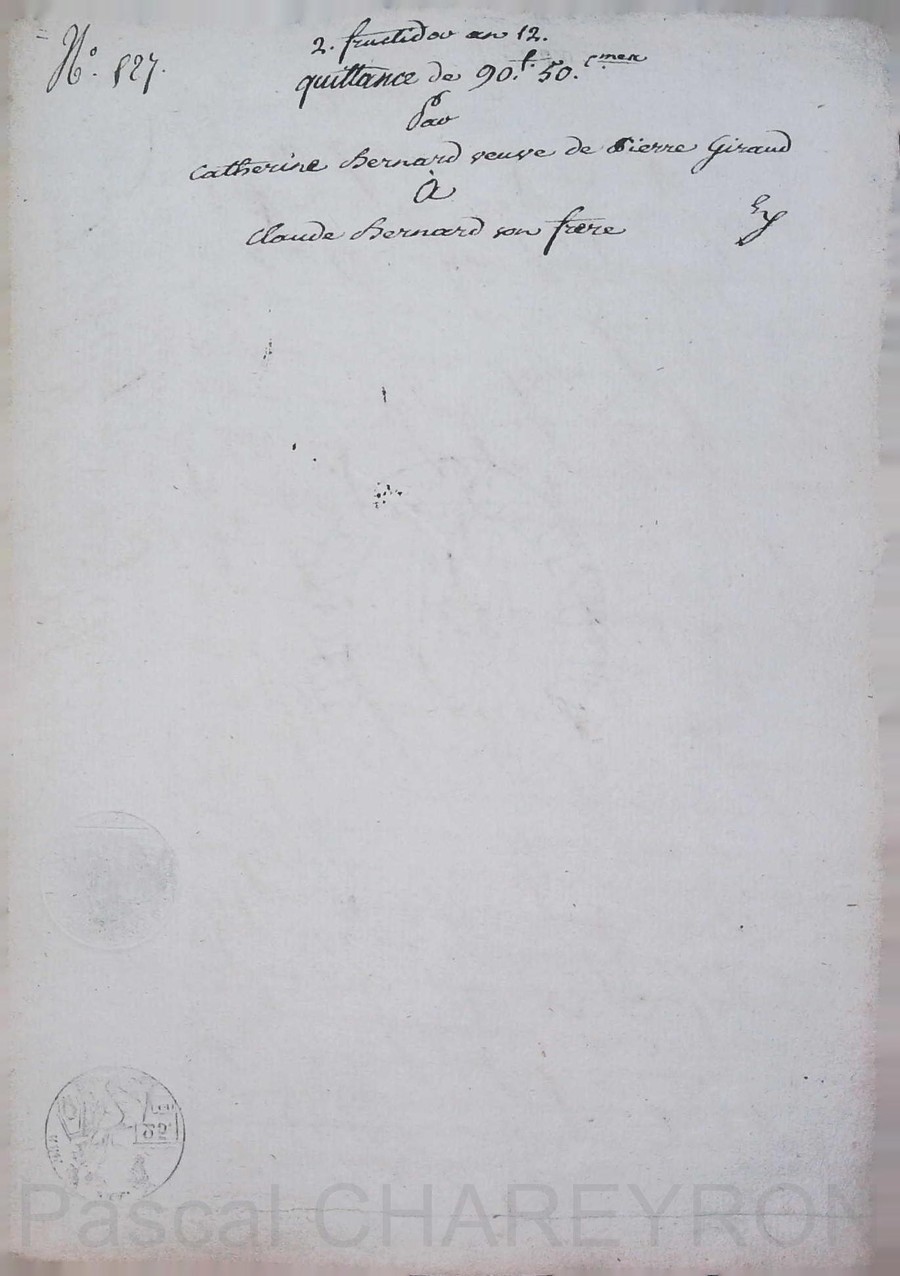 N.° 827.
2. fructidor an 12.
quittance de 90.f. 50. c.mes
Par
Catherine Bernard veuve de Pierre Giraud
à
Claude Bernard son frere
Pascal CHAREYRON